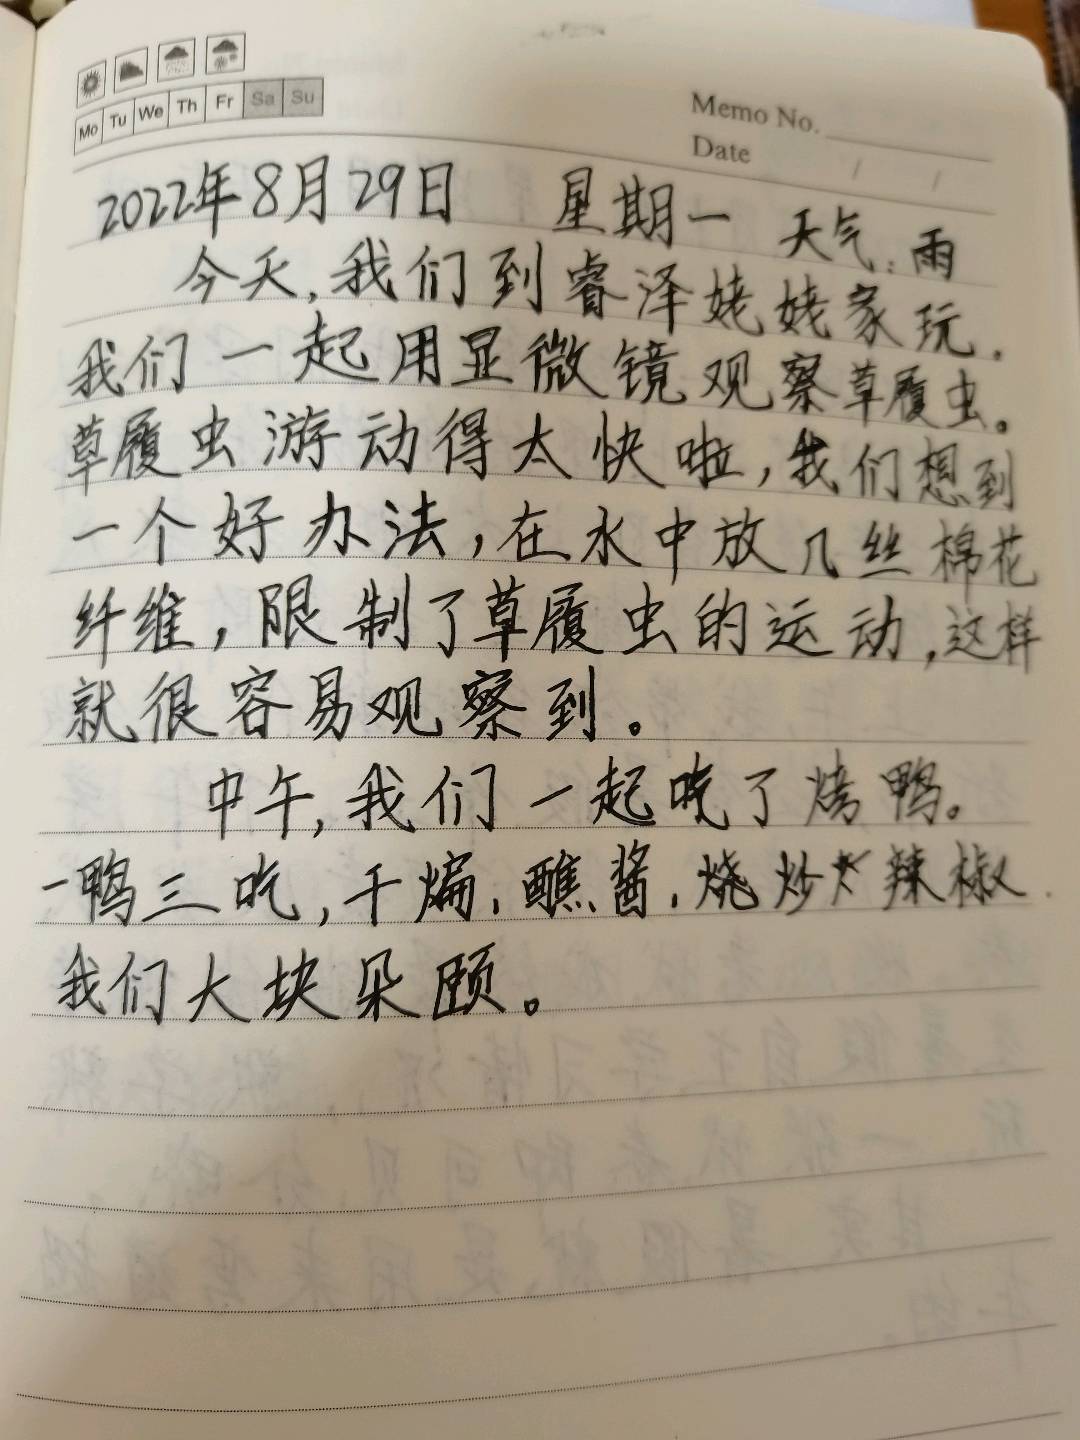 Mo Tu We Th Fr Sa Su
Memo No.
Date / /
2022年8月29日 星期一 天气:雨
今天,我们到睿泽姥姥家玩.
我们一起用显微镜观察草履虫。
草履虫游动得太快啦,我们想到
一个好办法,在水中放几丝棉花
纤维,限制了草履虫的运动,这样
就很容易观察到。
中午,我们一起吃了烤鸭。
一鸭三吃,干煸,醮酱,烧炒辣椒.
我们大块朵颐。